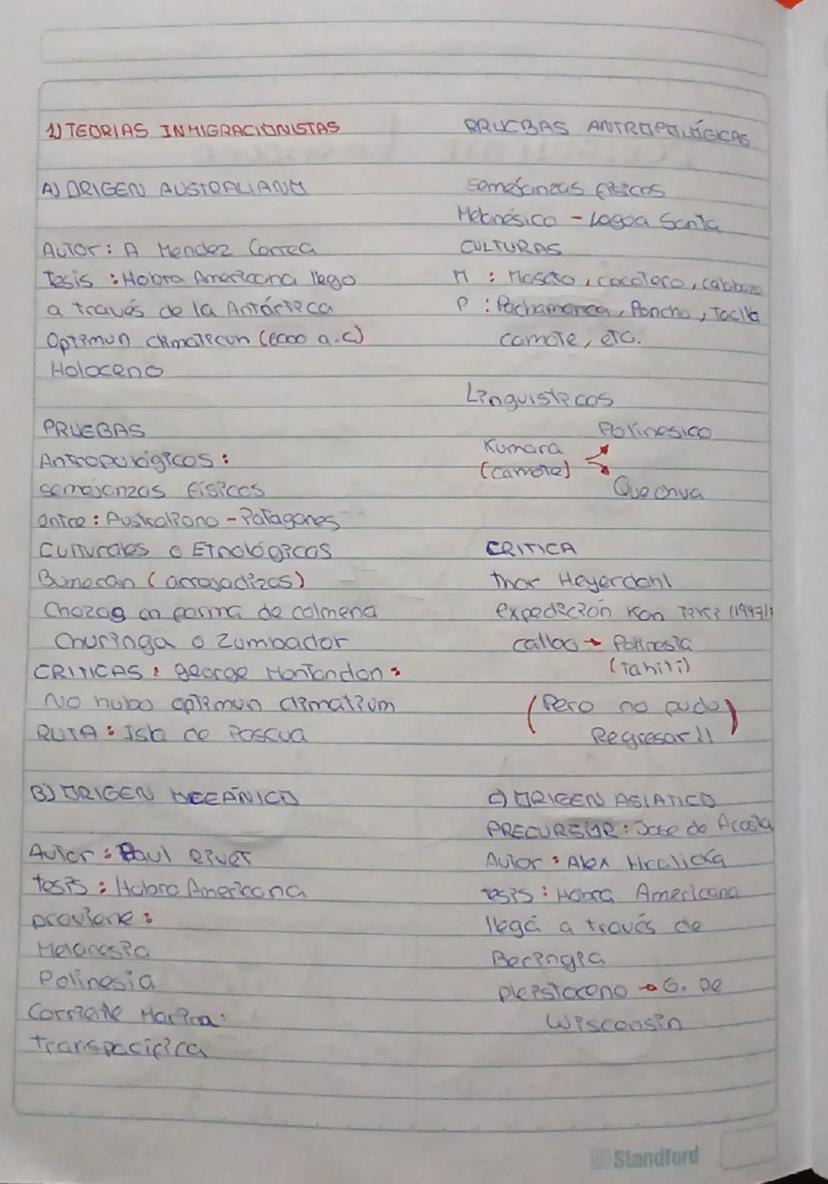 1) TEORIAS INMIGRACIONISTAS
A) ORIGEN AUSTRALIANO
Autor: A Mendez Correa
tesis: Hobra Americana llego
a través de la Antártica
Optimun climaticun (6000 a.c)
Holoceno
PRUEBAS
Antropológicos:
semejanzas físicos
entre: Australiano - Patagones
Culturales o Etnológicos
Bumeran (arrojadizos)
Chozas en forma de colmena
Churinga o Zumbador
CRITICAS: george Montandon:
No hubo optimun climatium
RUTA: Isla de Pascua
B) ORIGEN OCEÁNICO
Autor: Paul Rivet
tesis: Hobro Americana
proviene:
Melanesia
Polinesia
Corriente Marina:
transpacífica
PRUEBAS ANTROPOLÓGICAS
semejanzas físicos
Melanésico - Lagoa Santa
CULTURAS
M:
P: Pachamanca, Poncho, Taclla
camote, etc.
Linguisticos
Polinesico
Kumara
(camote)
Quechua
CRITICA
thor Heyerdahl
expedición Kon Tiki (1947)
callao → Polinesia
(tahiti)
(Pero no pudo
Regresar!!)
C) ORIGEN ASIATICO
PRECURSOR: Jose de Acosta
Autor: Alex Hrdlicka
tesis: Hobra Americana
llegá a través de
Beringia
pleistoceno → G. De
Wisconsin
Standford